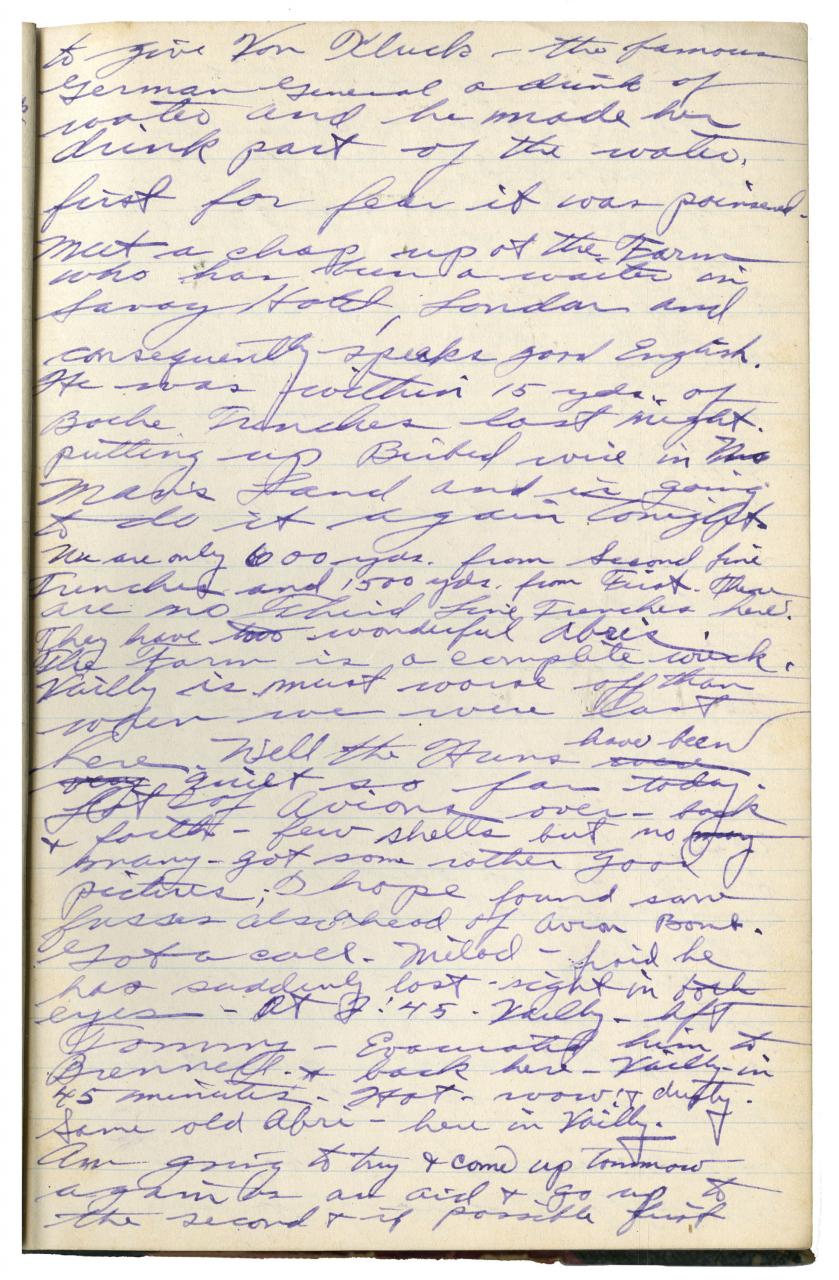 to give Von Kluck - the famous
German General a drink of
water and he made her
drink part of the water,
first for fear it was poinsend.
Meet a chap up at the Farm
who has been a waiter in
Savoy Hotel, London and
consequently speaks good English.
He was within 15 yds. of
Boche Trenches last night.
putting up Birbed wire in No
Man's Land and is going
to do it again tonight.
We are only 600 yds. from Second Line
Trenches and 1500 yds. from First. There
are no Third Line Trenches here.
They have too wonderful Abris.
The Farm is a complete wreck.
Vailly is must worse off than
when we were last
here. Well the Huns have been
were
very quiet so far today.
Lot of Avions over - back
& forth - few shells but no many
many - got some rather good
pictures, I hope found some
fusses also head of Avion Bomb.
Got a call - - said he
has suddenly lost sight in both
eyes - At 2:45 - Vailly - left
Tommy - Evacuated him to
Brennell - & back here - Vailly - in
45 minutes - Hot - wow! & dusty.
Same old Abri - here in Vailly.
Am going to try & come up tommow
again as an aid & go up to
the second & if possible first